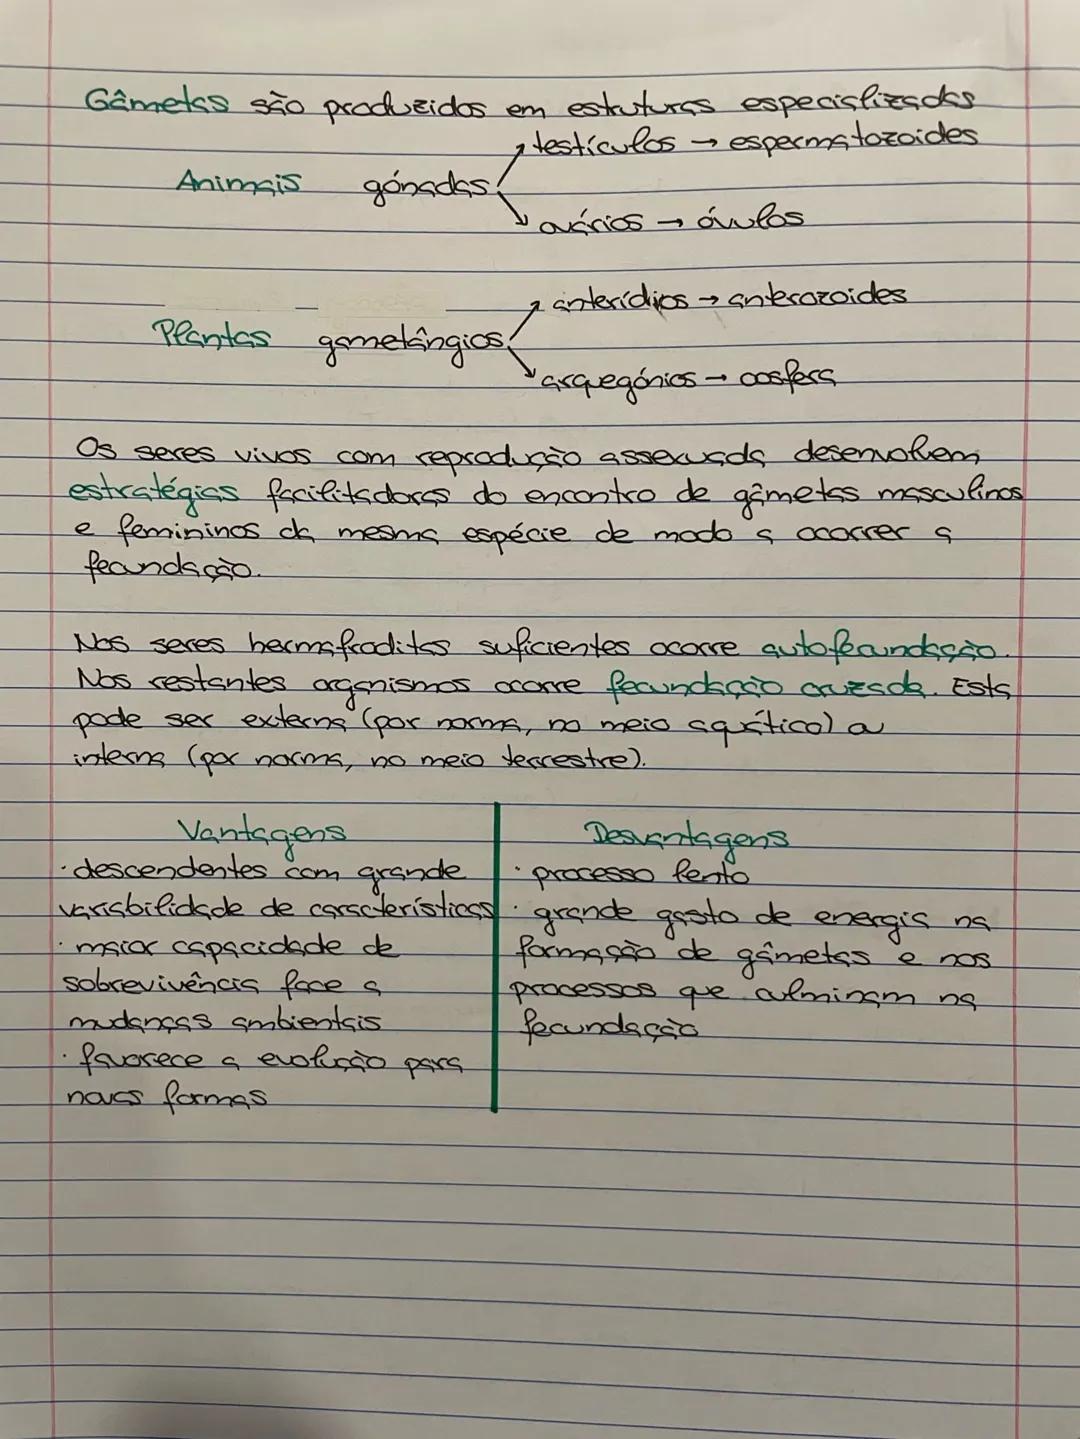 Gâmetas são produzidos em estruturas especializadas
testículos → espermatozoides
Animais gónadas
ovários → óvulos
anterídios → anterozoides
Plantas gametângios
arquegónios → oosfera
Os seres vivos com reprodução assexuada desenvolvem
estratégias facilitadoras do encontro de gâmetas masculinos
e femininos da mesma espécie de modo a ocorrer a
fecundação.
Nos seres hermafroditas suficientes ocorre autofecundação.
Nos restantes organismos ocorre fecundação cruzada. Esta
pode ser externa (por norma, no meio aquático) ou
interna (por norma, no meio terrestre).
Vantagens
· descendentes com grande
variabilidade de características
· maior capacidade de
sobrevivência face a
mudanças ambientais
· favorece a evolução para
novas formas
Desvantagens
· processo lento
· grande gasto de energia na
formação de gâmetas e nos
processos que culminam na
fecundação